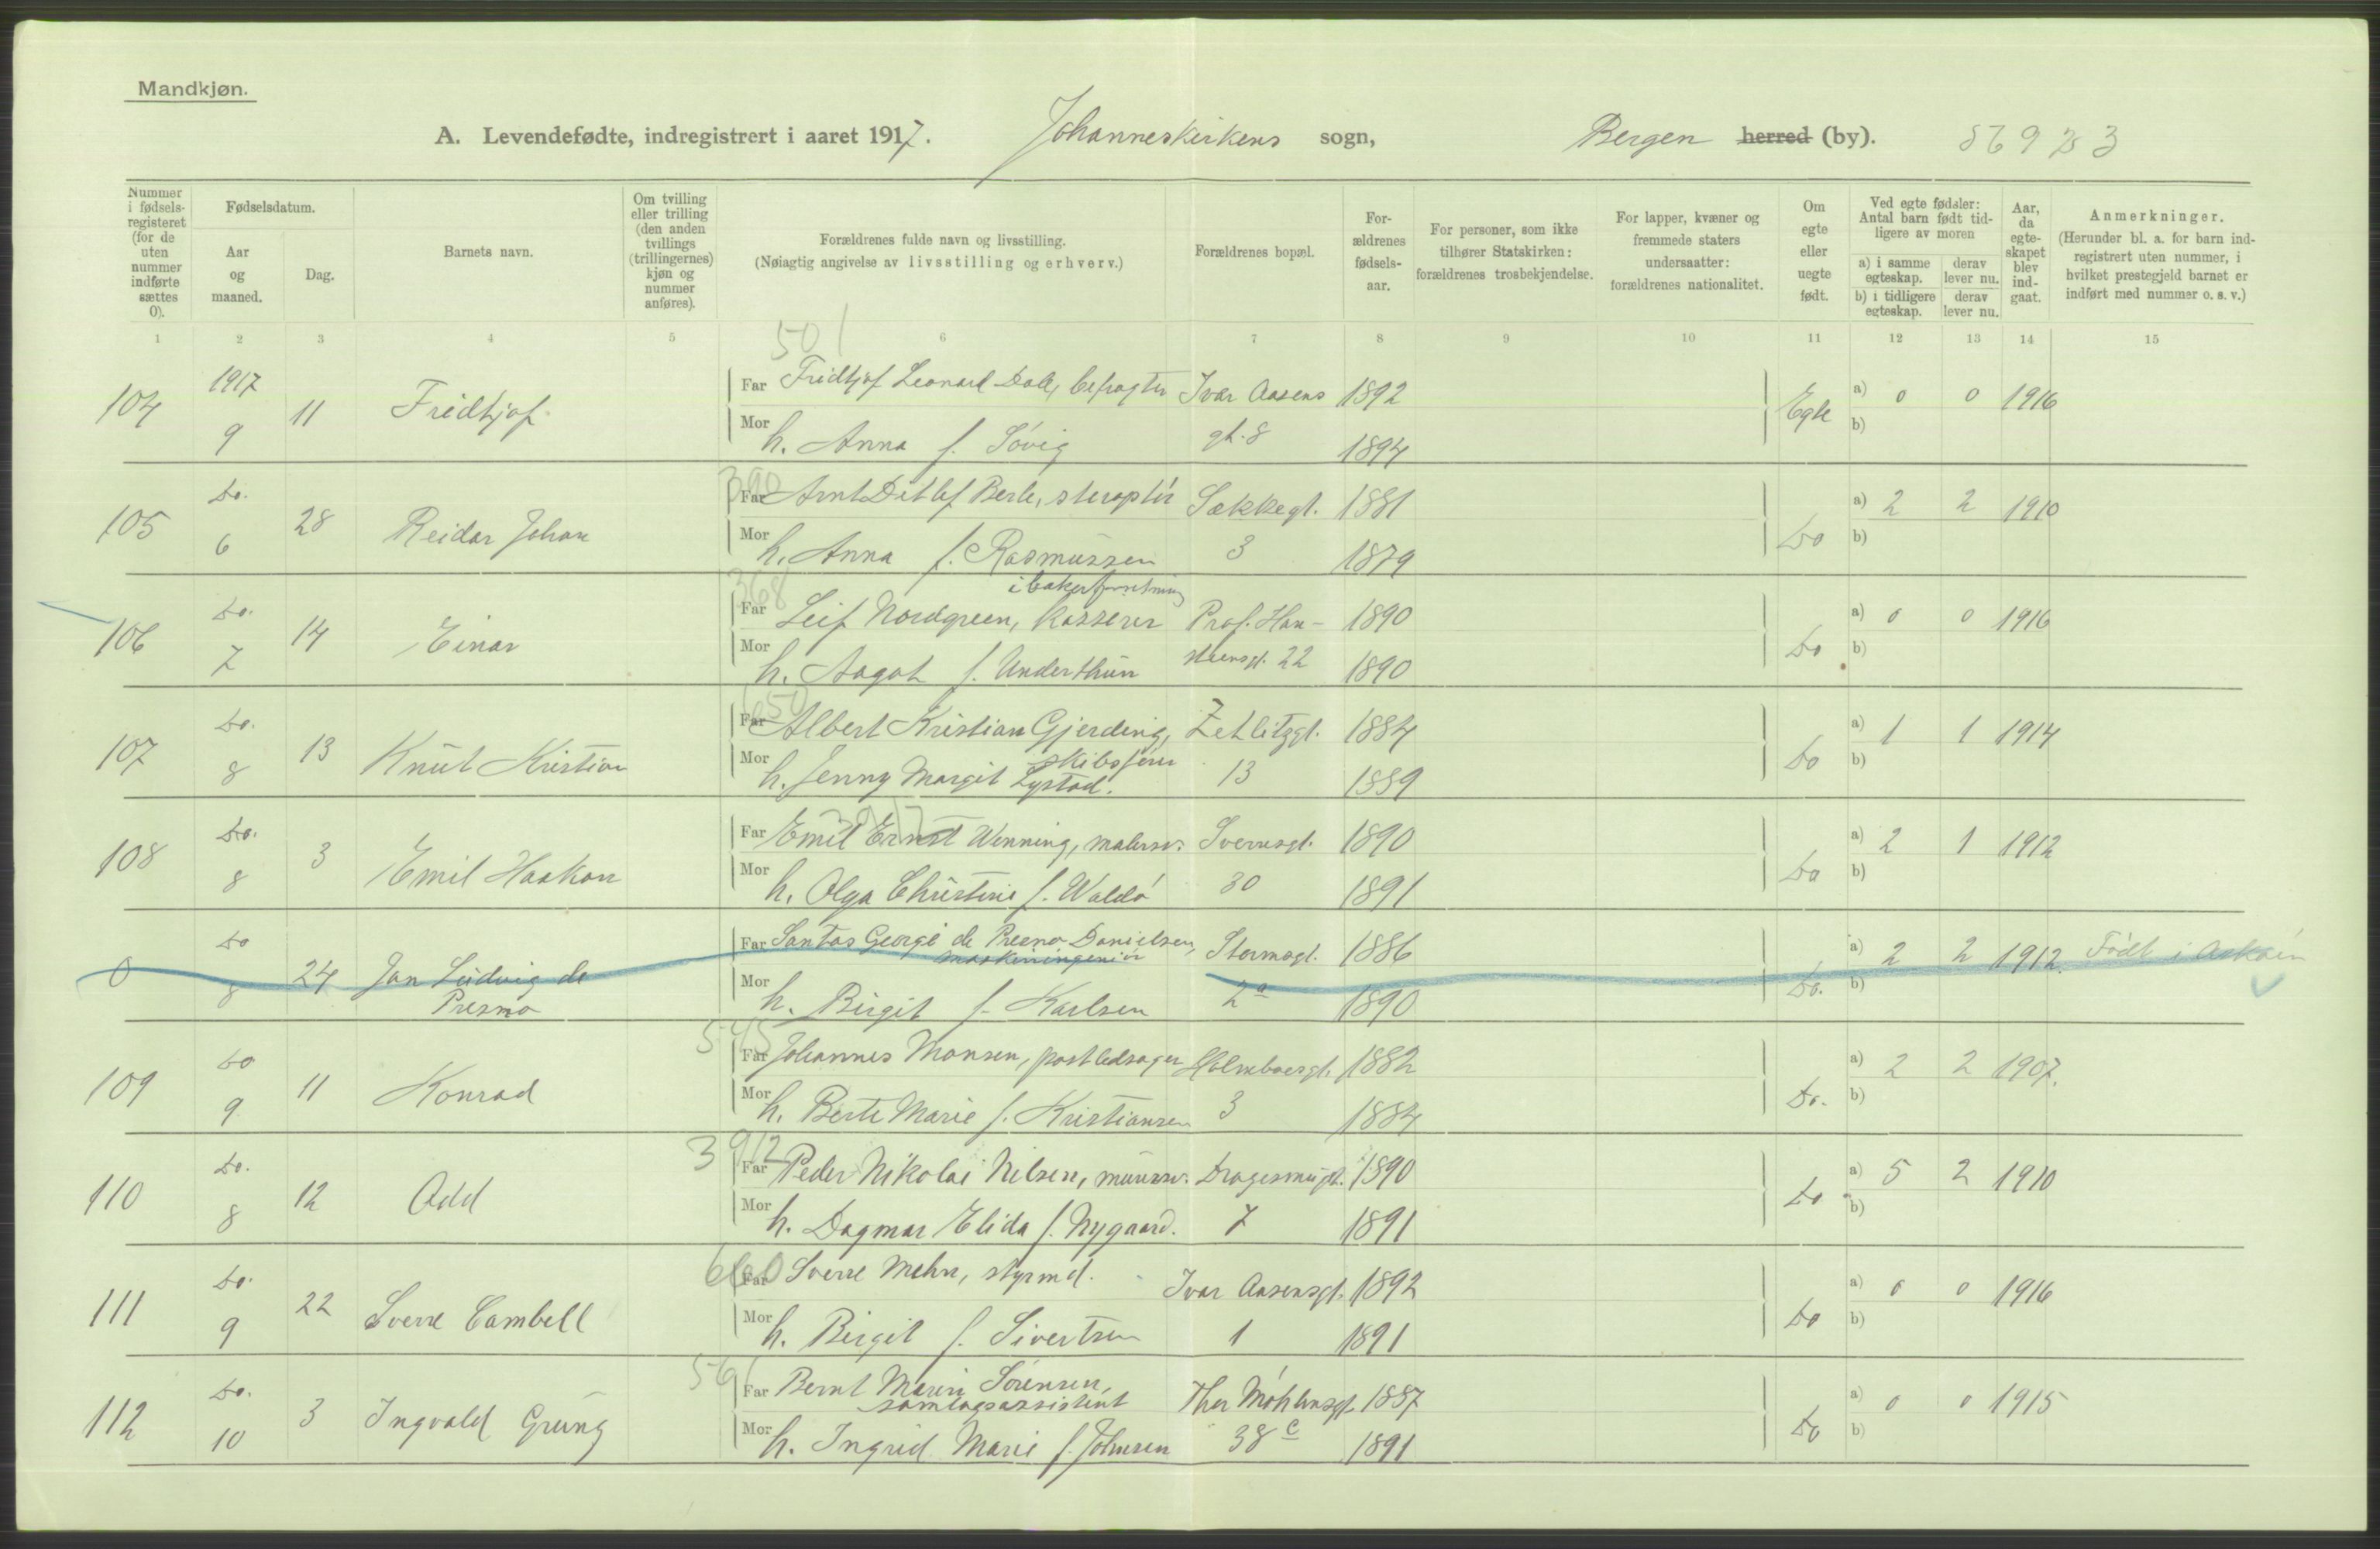 Mandkjøn.
A. Levendefødte, indregistrert i aaret 1917. Johanneskirkens sogn, Bergen herred (by).
Nummer i fødsels-registeret (for de uten nummer indførte sættes 0).
Fødselsdatum.
Aar og maaned.
Dag.
Barnets navn.
Om tvilling eller trilling (den anden tvillings (trillingernes) kjøn og nummer anføres).
Forældrenes fulde navn og livsstilling.
(Nøiagtig angivelse av livsstilling og erhverv.)
Forældrenes bopæl.
For-ældrenes fødsels-aar.
For personer, som ikke tilhører Statskirken: forældrenes trosbekjendelse.
For lapper, kvæner og fremmede staters undersaatter: forældrenes nationalitet.
Om egte eller uegte født.
Ved egte fødsler: Antal barn født tid-ligere av moren
a) i samme egteskap. derav lever nu.
b) i tidligere egteskap. derav lever nu.
Aar, da egte-skapet blev ind-gaat.
Anmerkninger.
(Herunder bl. a. for barn ind-registrert uten nummer, i hvilket prestegjeld barnet er indført med nummer o. s. v.)
1 2 3 4 5 6 7 8 9 10 11 12 13 14 15
501
104 1917 9 11 Fridtjof Far Fridtjof Leonard Dale, befragter Ivar Aasens 1892 Egte a) 0 0 1916
Mor h. Anna f. Søvig gt. 8 1894 b)
390
105 Do. 6 28 Reidar Johan Far Arnt Ditlef Berle, Sækkegt. 1881 Do a) 2 2 1910
Mor h. Anna f. Rasmussen 3 1879 b)
368
i bakerforretning
106 Do. 7 14 Einar Far Leif Nordgreen, kasserer Prof. Han- 1890 Do a) 0 0 1916
Mor h. Aagot f. Underthun steensgt. 22 1890 b)
650
107 Do. 8 13 Knut Kristian Far Albert Kristian Gjerding, Zetlitzgt. 1884 Do a) 1 1 1914
skibsfører
Mor h. Jenny Margit Lystad. 13 1889 b)
108 Do. 8 3 Emil Haakon Far Emil Ernst Wenning, malersv. Sverresgt. 1890 Do a) 2 1 1912
Mor h. Olga Christine f. Waldø 30 1891 b)
0 Do 8 24 Jan Ludvig de Presno Far Santos George de Presno Danielsen, Stormsgt. 1886 Do. a) 2 2 1912. Født i Askøen
maskiningeniør
Mor h. Birgit f. Karlsen 2a 1890 b)
545
109 Do 9 11 Konrad Far Johannes Monsen, postledsager Holmboesgt. 1882 Do. a) 2 2 1907.
Mor h. Berte Marie f. Kristiansen 3 1884 b)
3912
110 Do. 8 12 Odd Far Peder Nikolai Nilsen, murersv. 1890 Do a) 5 2 1910
Mor h. Dagmar Elida f. Nygaard. 7 1891 b)
660
111 Do. 9 22 Sverre Cambell Far Sverre Mehn, styrmd. Ivar Aasensgt. 1892 Do a) 0 0 1916
Mor h. Birgit f. Sivertsen 1 1891 b)
561
112 Do. 10 3 Ingvald Grung Far Bernt Marin Sørensen, Thor Møhlensgt. 1887 Do a) 0 0 1915
samlagsassistent
Mor h. Ingrid Marie f. Johnsen 38c 1891 b)